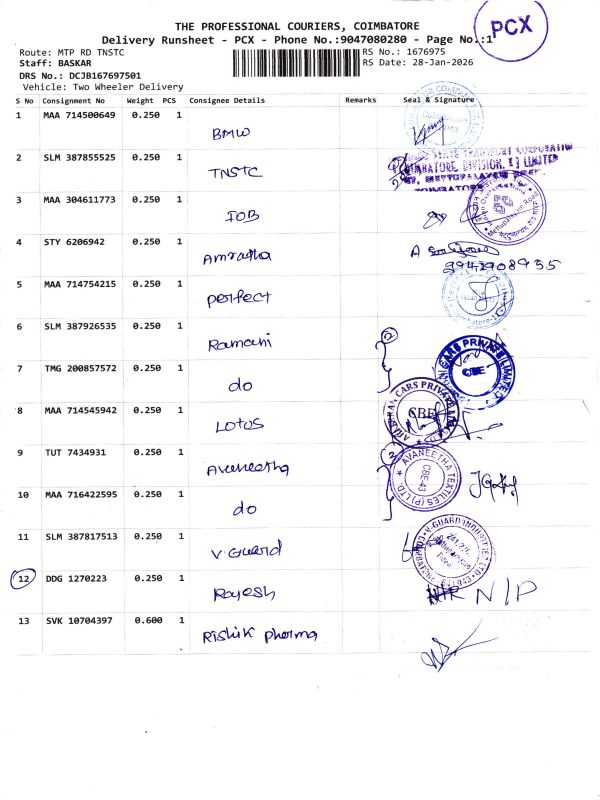 THE PROFESSIONAL COURIERS, COIMBATORE
Delivery Runsheet - PCX - Phone No.:9047080280 - Page No.:1
PCX
Route: MTP RD TNSTC RS No.: 1676975
Staff: BASKAR RS Date: 28-Jan-2026
DRS No.: DCJB167697501
Vehicle: Two Wheeler Delivery
S No Consignment No Weight PCS Consignee Details Remarks Seal & Signature
1 MAA 714500649 0.250 1 BMW
2 SLM 387855525 0.250 1 TNSTC
STATE TRANSPORT CORPORATION
COIMBATORE, DIVISION, I) LIMITED
METTUPALAYAM ROAD,
COIMBATORE
3 MAA 304611773 0.250 1 IOB
4 STY 6206942 0.250 1 Amratha
5 MAA 714754215 0.250 1 perfect
6 SLM 387926535 0.250 1 Ramani
2
CARS PRIVATE LIMITED
CBE
7 TMG 200857572 0.250 1 do
8 MAA 714545942 0.250 1 LOTUS
CARS PRIVATE
CBE
9 TUT 7434931 0.250 1 Avaneetha
2
AVANEETHA TEXTILES (P) LTD.
CBE-43
10 MAA 716422595 0.250 1 do
11 SLM 387817513 0.250 1 V. Guard
V-GUARD INDUSTRIES LTD
12 DDG 1270223 0.250 1 Rajesh N/P
13 SVK 10704397 0.600 1 Rishik pharma